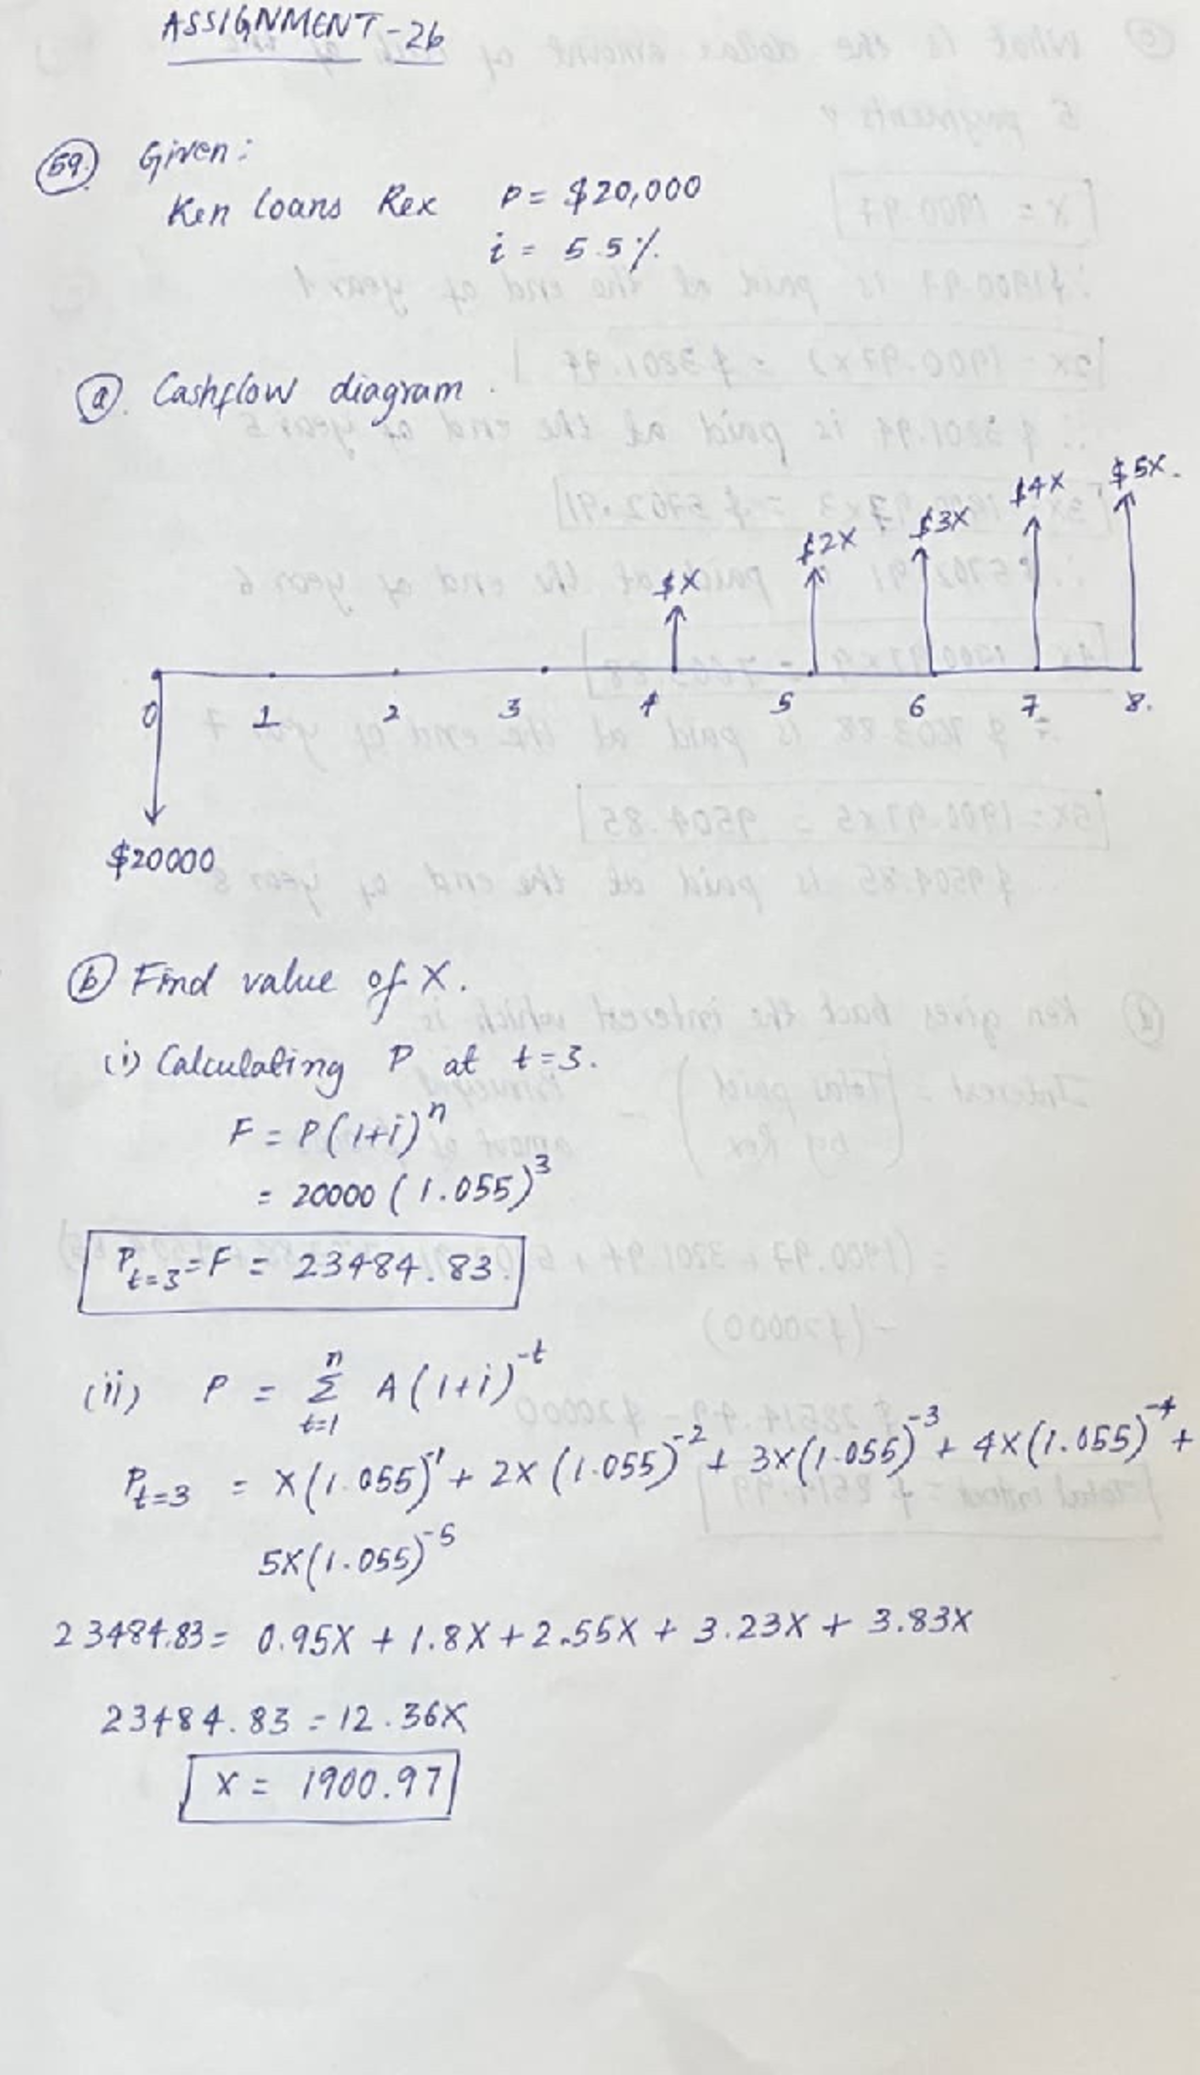 ASSIGNMENT-2b
59. Given:
Ken loans Rex P = $20,000
i = 5.5%.
a. Cashflow diagram.
$X $2X $3X $4X $5X.
0 1 2 3 4 5 6 7 8.
$20000
b Find value of X.
(i) Calculating P at t=3.
F = P(1+i)^n
= 20000 (1.055)^3
P_{t=3} = F = 23484.83
(ii) P = Σ_{t=1}^{n} A(1+i)^{-t}
P_{t=3} = X(1.055)^{-1} + 2X(1.055)^{-2} + 3X(1.055)^{-3} + 4X(1.055)^{-4} +
5X(1.055)^{-5}
23484.83 = 0.95X + 1.8X + 2.55X + 3.23X + 3.83X
23484.83 = 12.36X
X = 1900.97